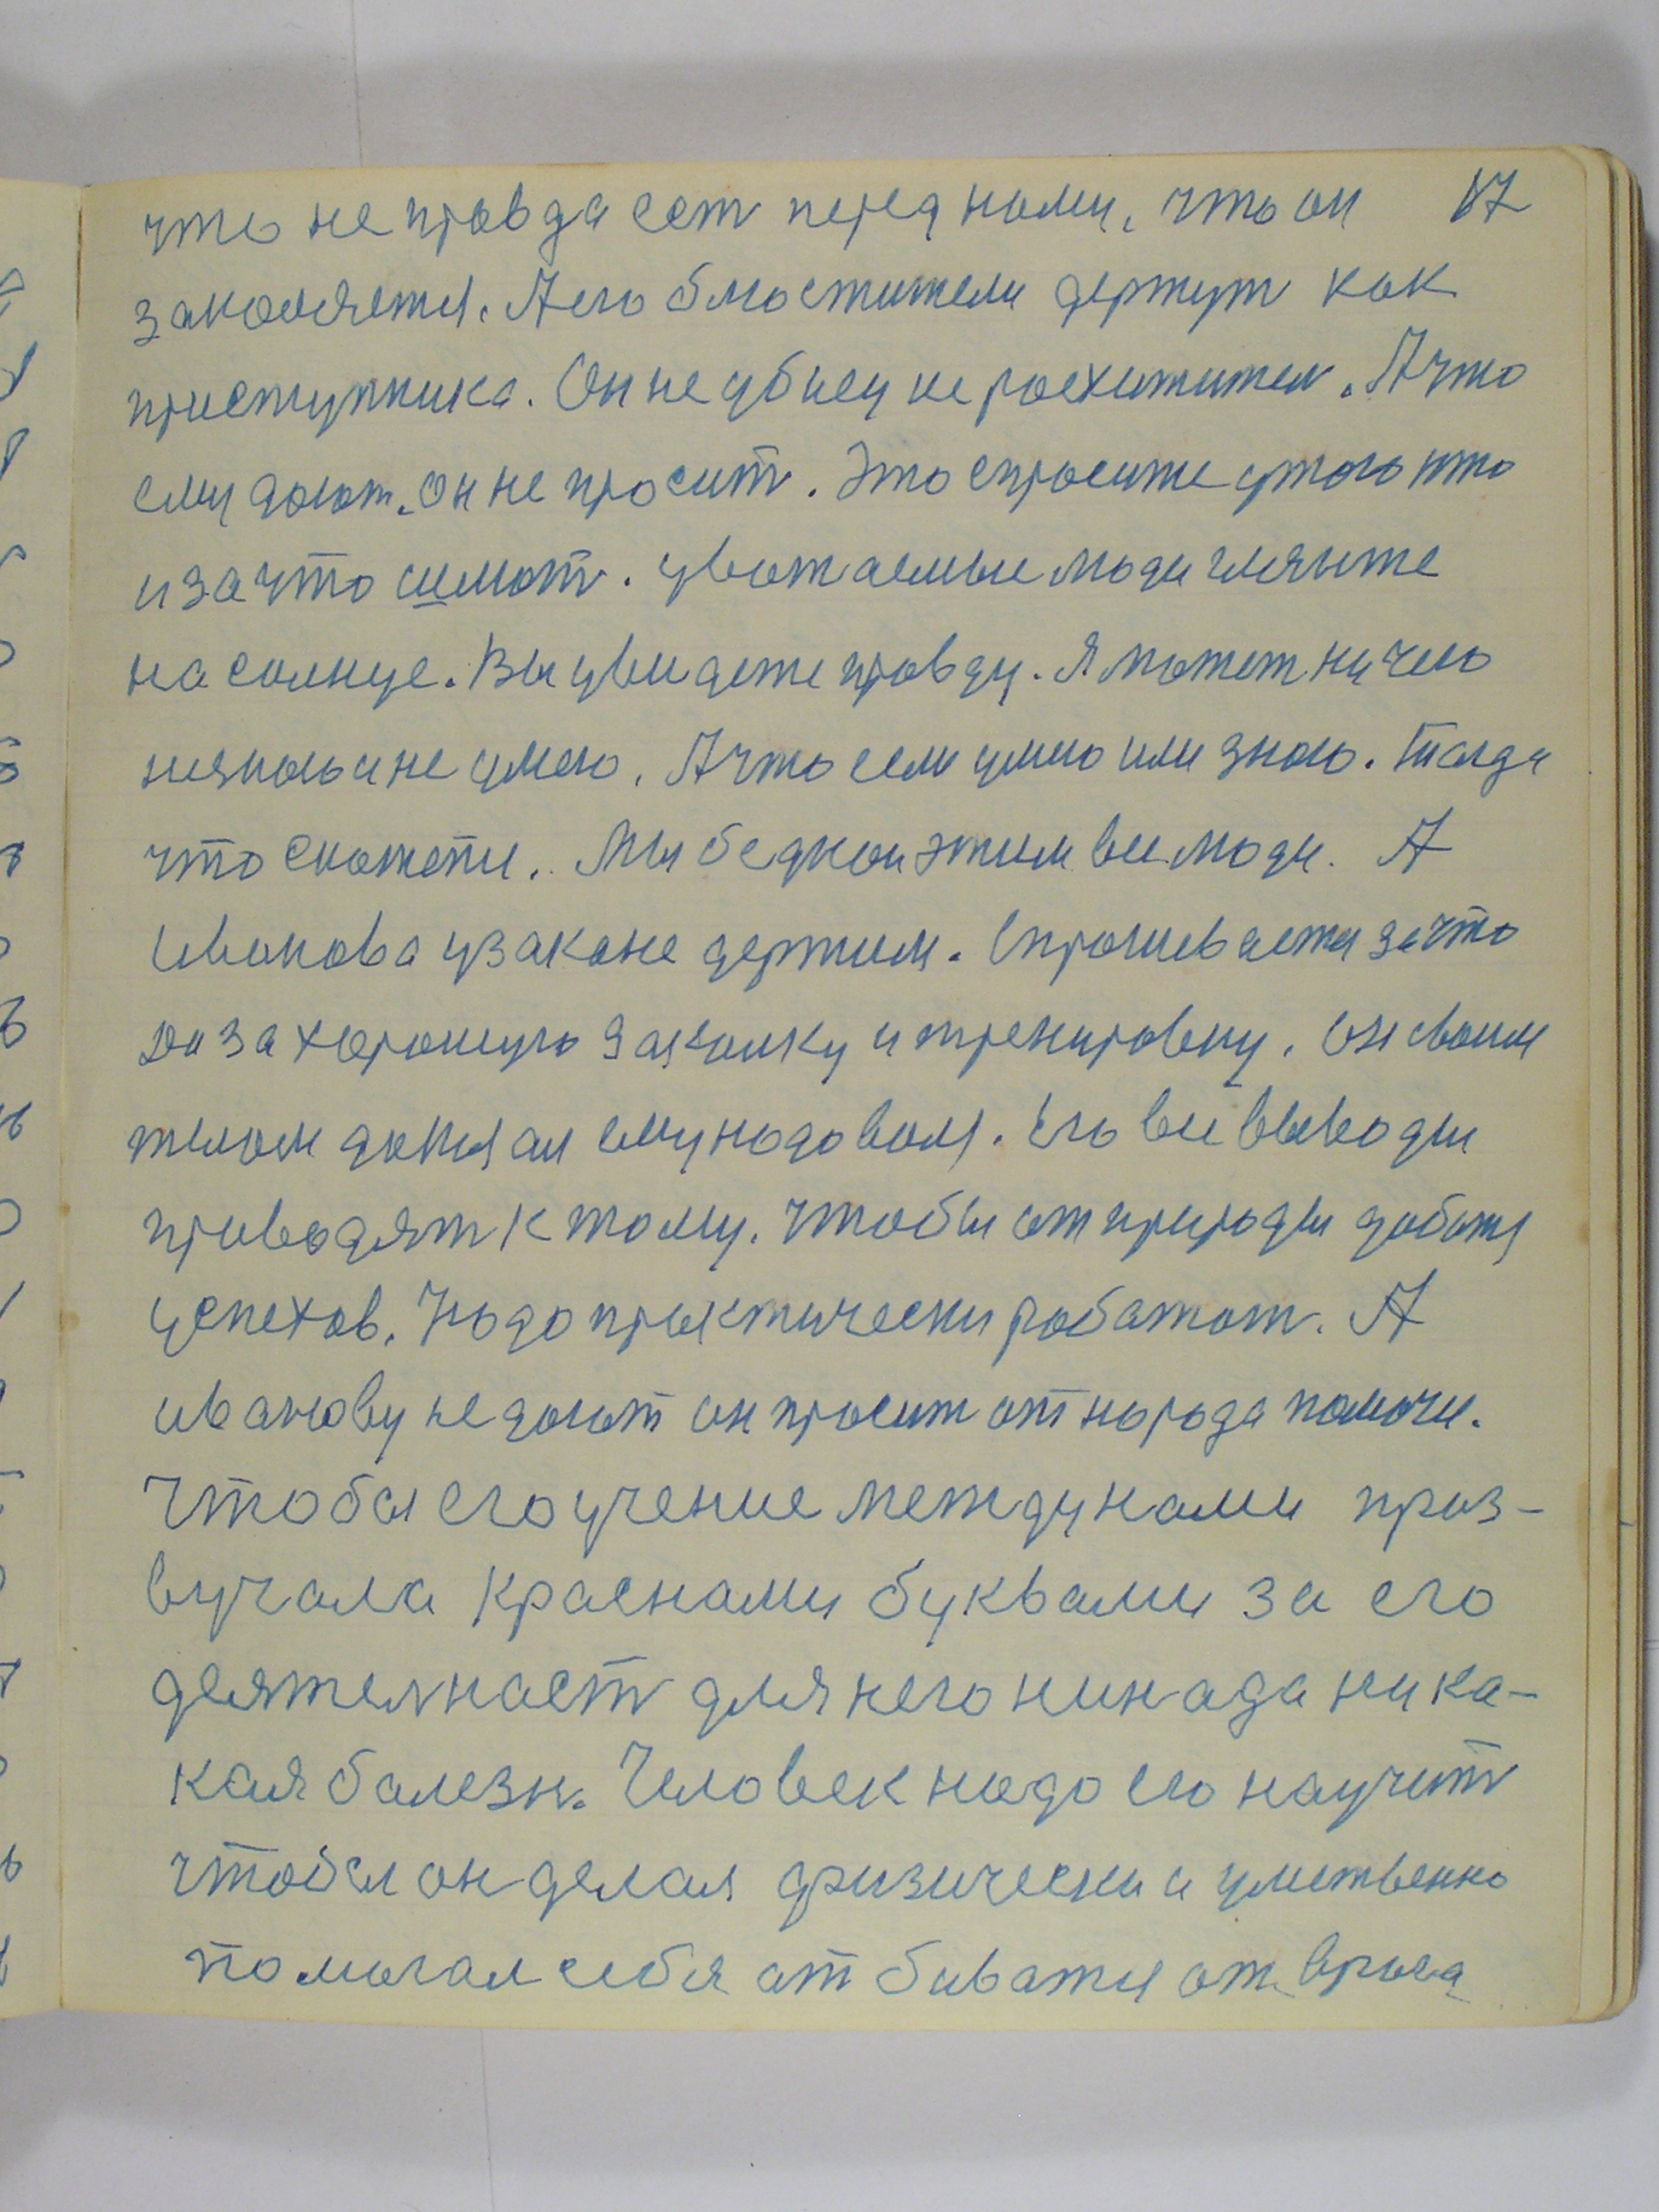 что не правда ест перед нами, что он 17
закаляется. А его блюстители держут как
приступника. Он не убиец не росхититель. А что
ему дают. он не просит. Это спросите утого кто
и за что шлют. уважаемые люди гляньте
на солнце. Вы увидете правду. Я может ничего
незнаю и не умею. А что если умею или знаю. Тагда
что скажети. Мы бедном этим все люди. А
Иванова узаконе держим. Спрошевается за что
да за хорошую закалку и тренировку. он своим
телом доказал ему надоваля. Его все выводы
приводят к тому. чтобы от природы добатся
успехов. Надо практически работат. А
иванову не дают он просит от народа помочи.
Чтобы его учение между нами проз-
вучала краснами буквами за его
деятелнаст для него нинада ника-
кая болезн. Человек надо его научит
чтобы он делал физически и умственно
помогал себя отбиватся от врага